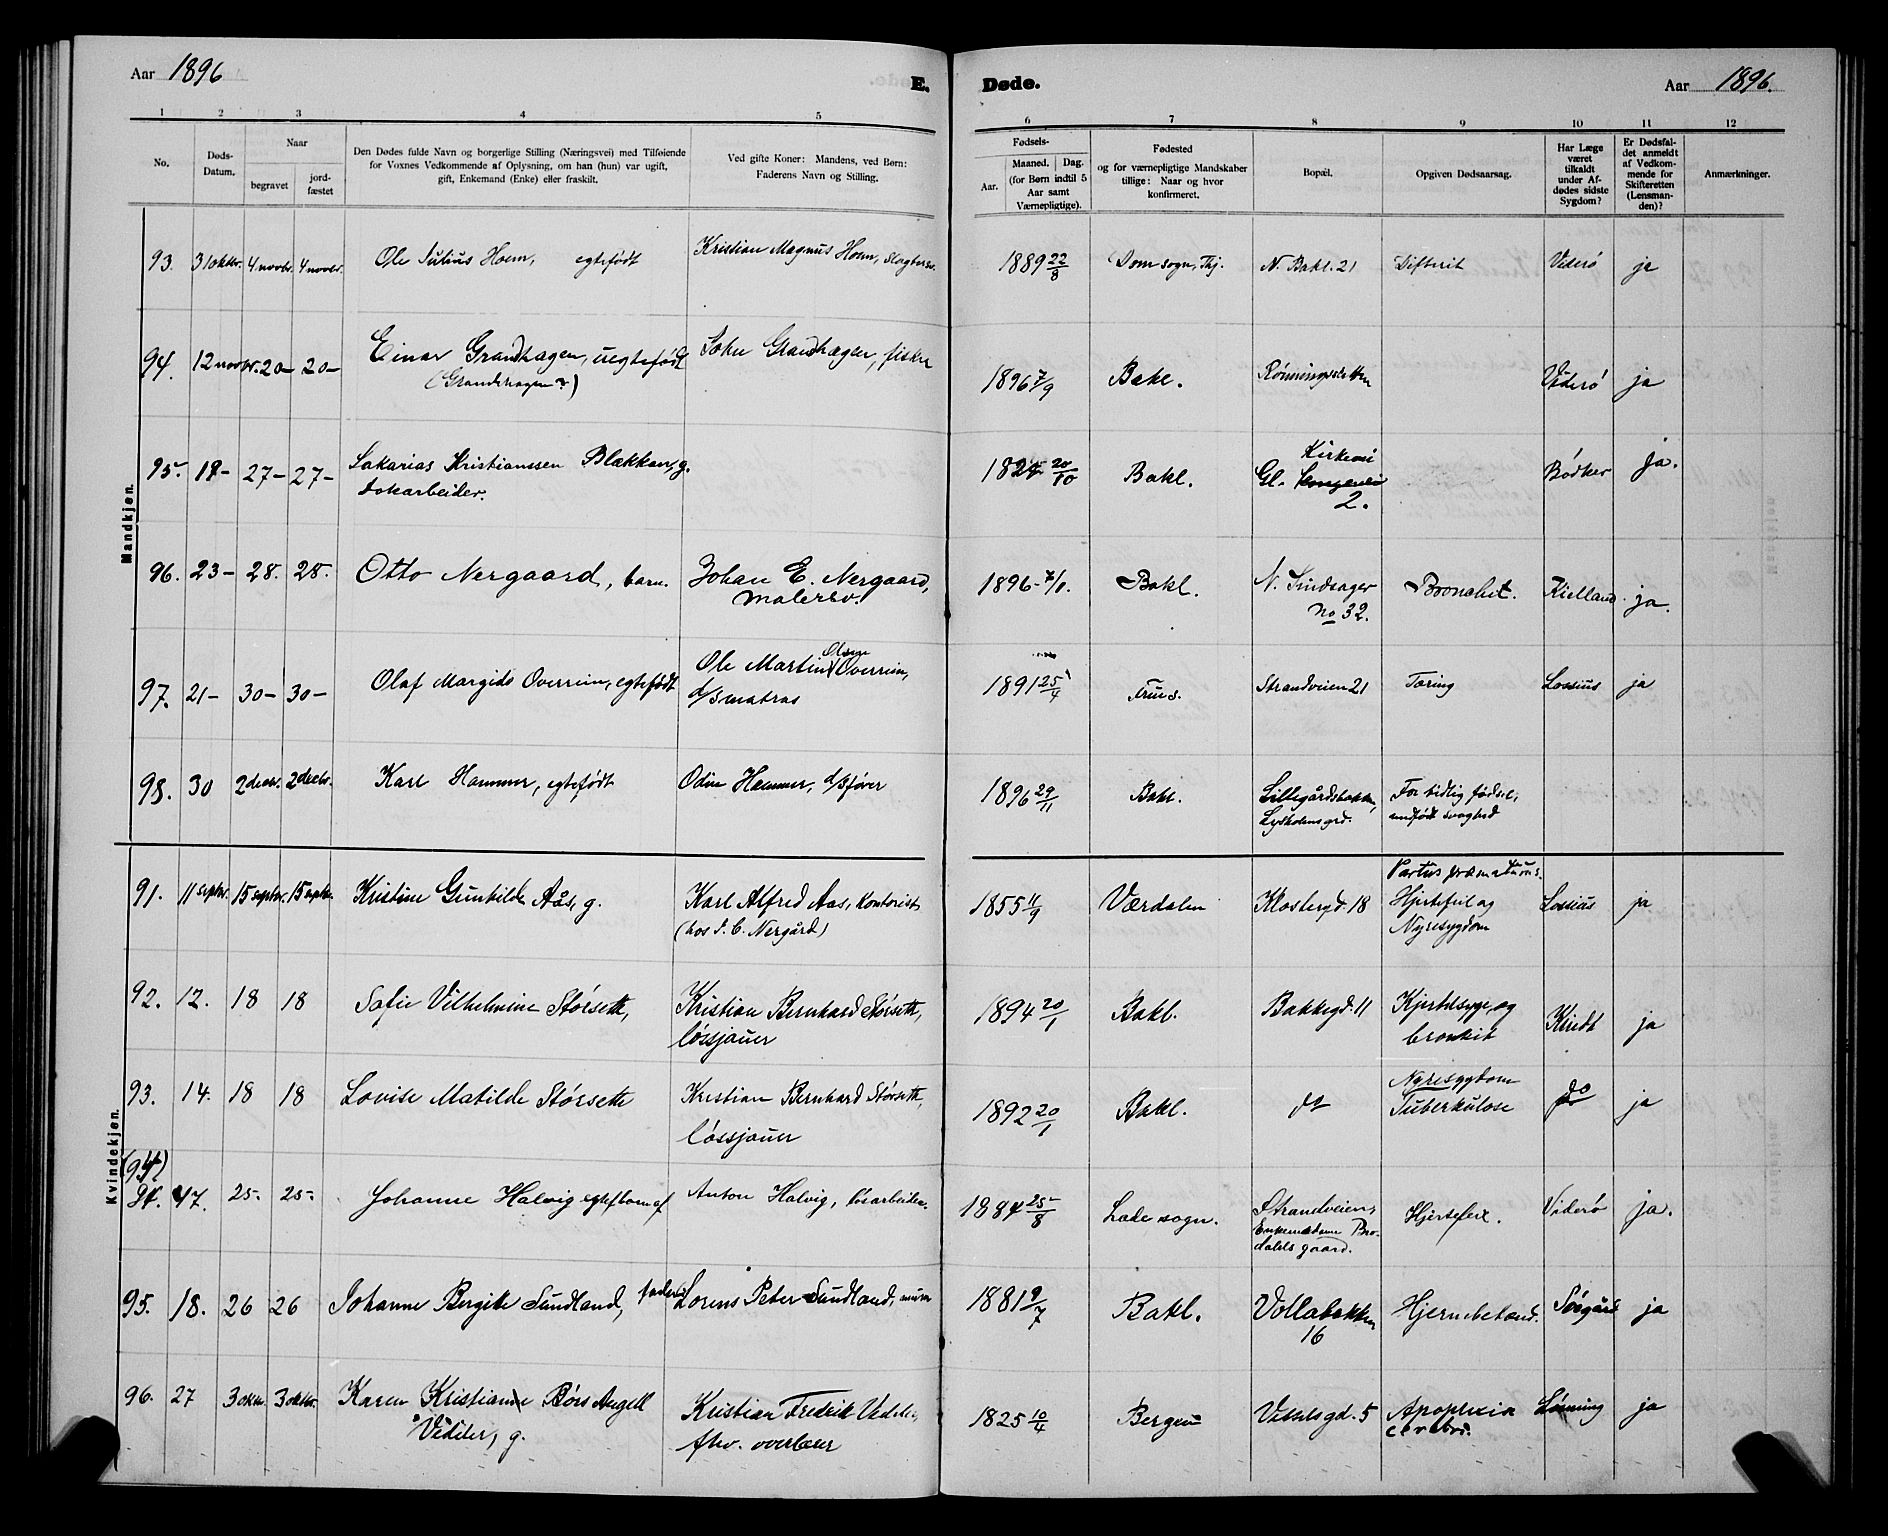 Aar 1896
E. Døde.
Aar 1896.
1 2 3 4 5 6 7 8 9 10 11 12
No.
Døds-Datum.
Naar
begravet
jord-fæstet
Den Dødes fulde Navn og borgerlige Stilling (Næringsvei) med Tilføiende
for Voxnes Vedkommende af Oplysning, om han (hun) var ugift,
gift, Enkemand (Enke) eller fraskilt.
Ved gifte Koner: Mandens, ved Børn:
Faderens Navn og Stilling.
Fødsels-
Aar.
Maaned. Dag.
(for Børn indtil 5
Aar samt
Værnepligtige).
Fødested
og for værnepligtige Mandskaber
tillige: Naar og hvor
konfirmeret.
Bopæl.
Opgiven Dødsaarsag.
Har Læge
været
tilkaldt
under Af-
dødes sidste
Sygdom?
Er Dødsfal-
det anmeldt
af Vedkom-
mende for
Skifteretten
(Lensman-
den)?
Anmærkninger.
Mandkjøn.
93. 31 oktbr. 4 novbr. 4 novbr. Ole Julius Hoem, egtefødt Kristian Magnus Hoem, slagtersv. 1889 22/8 Domsogn, Thj. N. Bakl. 21 Difterit Viderö ja
94. 12 novbr. 20– 20– Einar Grandhagen, uegtefødt John Grandhagen, fisker
(Grandshagen?)
1896 7/9 Bakl. Rönningsletten Viderö ja
95. 19– 27– 27– Sakarias Kristianssen Blækkan, g.
dokarbeider.
20/10 Bakl. Kirkevei
Gl. Kongevei
2. Bödker ja.
96. 23– 28. 28. Otto Nergaard, barn. Johan E. Nergaard,
malersv.
1896– Bakl. N. Sindsager
No 32. Bronchit. Kielland ja.
97. 21– 30– 30– Olaf Margido Overrein, egtefødt Ole Martin Olsen Overrein,
d/s matros
1891 25/4 Frues. Strandveien 21 Tæring Lossius ja
98. 30 2 decbr. 2 decbr. Karl Hammer, egtefødt Odin Hammer, d/s fører 1896 29/11 Bakl. Lillegårdsbakken,
Lysholmsgrd.
For tidlig födsel,
medfödt svaghed
Partus præmaturus.
Kvindekjøn.
91. 11 septbr. 15 septbr. 15 septbr. Kristine Gunhilde Aås, g. Karl Alfred Aas, kontorist
(hos J. C. Nergård)
1855 11/9 Værdalen Klostergd. 18 Hjertefeil og
Nyresygdom Lossius ja
92. 12. 18 18 Sofie Vilhelmine Störseth, Kristian Bernhard Störseth,
løssjauer
1894 20/1 Bakl. Bakkegd. 11 Kjertelsyge og
bronkit Kindt ja
93. 14. 18 18 Lovise Matilde Störseth Kristian Bernhard Störseth,
løssjauer
1892 20/1 Bakl. do Nyresygdom
Tuberkulose do ja
(94)
94. 17. 25– 25– Johanne Halvig egtef barn af Anton Halvig, løsarbeider. 1884 25/8 Lade sogn. Strandveien,
Enkemadame Bro-
dahls gaard. Hjertefeil. Viderö ja.
95. 18. 26 26 Johanne Bergitte Sundland, faderen Lorens Peter Sundland, murer 1881 9/7 Bakl. Vollabakken
16 Hjernebetænd. Sørgård ja
96. 27 3 oktbr. 3 oktbr. Karen Kristiane Börs Angell
Vedeler, g. Kristian Fredrik Vedeler,
fhv. overlærer
1825 10/4 Bergen Vesselsgd. 5 Apoplexia
cerebri. Lörning ja